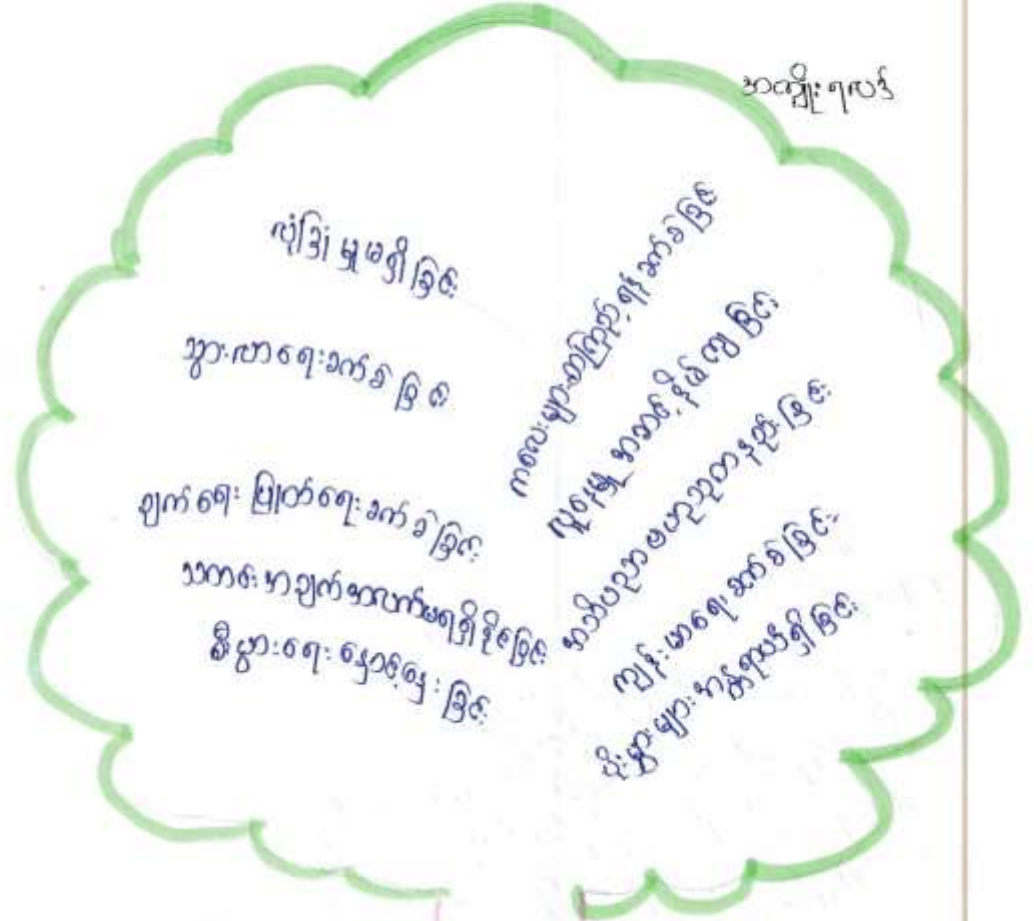 အကျိုးရလဒ်
လုံခြုံမှုမရှိခြင်း
သွားလာရေးခက်ခဲခြင်း
ချက်ရေးပြုတ်ရေးခက်ခဲခြင်း
သတင်းအချက်အလက်မရရှိနိုင်ခြင်း
စီးပွားရေးနှောင့်နှေးခြင်း
ကလေးများစာကြည့်ရန်ခက်ခဲခြင်း
လူနေမှုအဆင့်နိမ့်ကျခြင်း
အသိပညာဗဟုသုတနည်းခြင်း
ကျန်းမာရေးခက်ခဲခြင်း
မိုးများအန္တရာယ်ရှိခြင်း